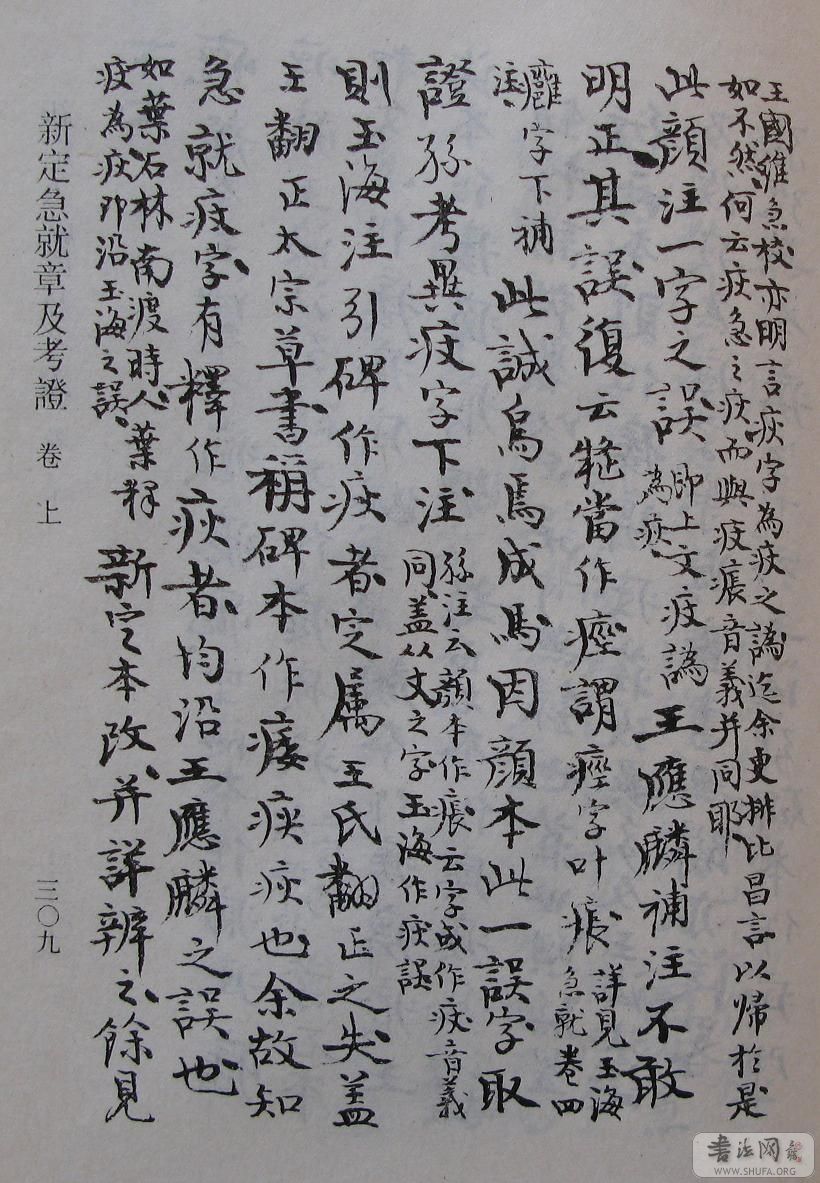 王國維急校亦明言疢字為疢之譌迄余更排比昌言以歸於是
如不然何云疢急之疢而與疲㾗音義并同耶
此顏注一字之誤
即上文疲譌
為疢
王應麟補注不敢
明正其誤復云㽿當作瘂謂痙字叶㾗
詳見玉海
急就卷四
癰字下補
注
此誠烏焉成馬因顏本此一誤字取
證孫考異疲字下注
孫注云顏本作㾗云字或作疲音義
同蓋从文之字玉海作疢誤
則玉海注引碑作疢者定属王氏翻正之失蓋
王翻正太宗草書稱碑本作瘘疾疢也余故知
急就疲字有釋作疢者均沿王應麟之誤也
如葉石林南渡時人葉釋
疲為疢即沿玉海之誤
新定本改并詳辨之餘見
新定急就章及考證 卷上
三〇九
書法网
WWW.SHUFA.ORG